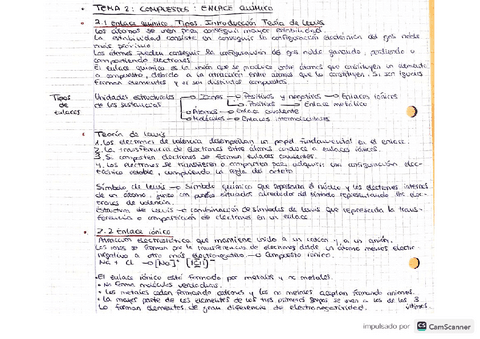 TEMA 2: COMPUESTOS: ENLACE QUÍMICO
2.1 Enlace químico. Tipos. Introducción. Teoría de Lewis
Los átomos se unen para conseguir mayor estabilidad.
La estabilidad consiste en conseguir la configuración electrónica del gas noble
más próximo.
Los átomos pueden conseguir la configuración de gas noble ganando, perdiendo o
compartiendo electrones.
El enlace químico es la unión que se produce entre átomos que constituyen un elemento
o compuesto, debido a la atracción entre átomos que lo constituyen. Si son iguales
forman elementos y si son distintos compuestos.
Tipos de enlaces
Unidades estructurales de las sustancias
Iones → Positivos y negativos → Enlaces iónicos
Positivos → Enlace metálico
Átomos → Enlace covalente
Moléculas → Enlaces intermoleculares
Teoría de Lewis
1. Los electrones de valencia desempeñan un papel fundamental en el enlace.
2. La transferencia de electrones entre átomos conduce a enlaces iónicos.
3. Si comparten electrones se forman enlaces covalentes.
4. Los electrones se transfieren o comparten para adquirir una configuración elec-
trónica estable, cumpliendo la regla del octeto
Símbolo de Lewis → Símbolo químico que representa el núcleo y los electrones internos
de un átomo, junto con puntos situados alrededor del símbolo representando los elec-
trones de valencia.
Estructura de Lewis → combinación de símbolos de Lewis que representa la trans-
ferencia o compartición de electrones en un enlace
2.2 Enlace iónico
Atracción electrostática que mantiene unido a un catión y a un anión.
Los iones se forman por la transferencia de electrones desde un átomo menos electro-
negativo a otro más electronegativo → Compuesto iónico.
Na + Cl → [Na]⁺ [Cl]⁻
• El enlace iónico está formado por metales y no metales.
• Ni forma moléculas verdaderas.
• Los metales ceden formando cationes y los no metales aceptan formando aniones.
• La mayor parte de los elementos de los tres primeros grupos se unen a los de los 3
últimos.
Lo forman elementos de gran diferencia de electronegatividad.
impulsado por CS CamScanner